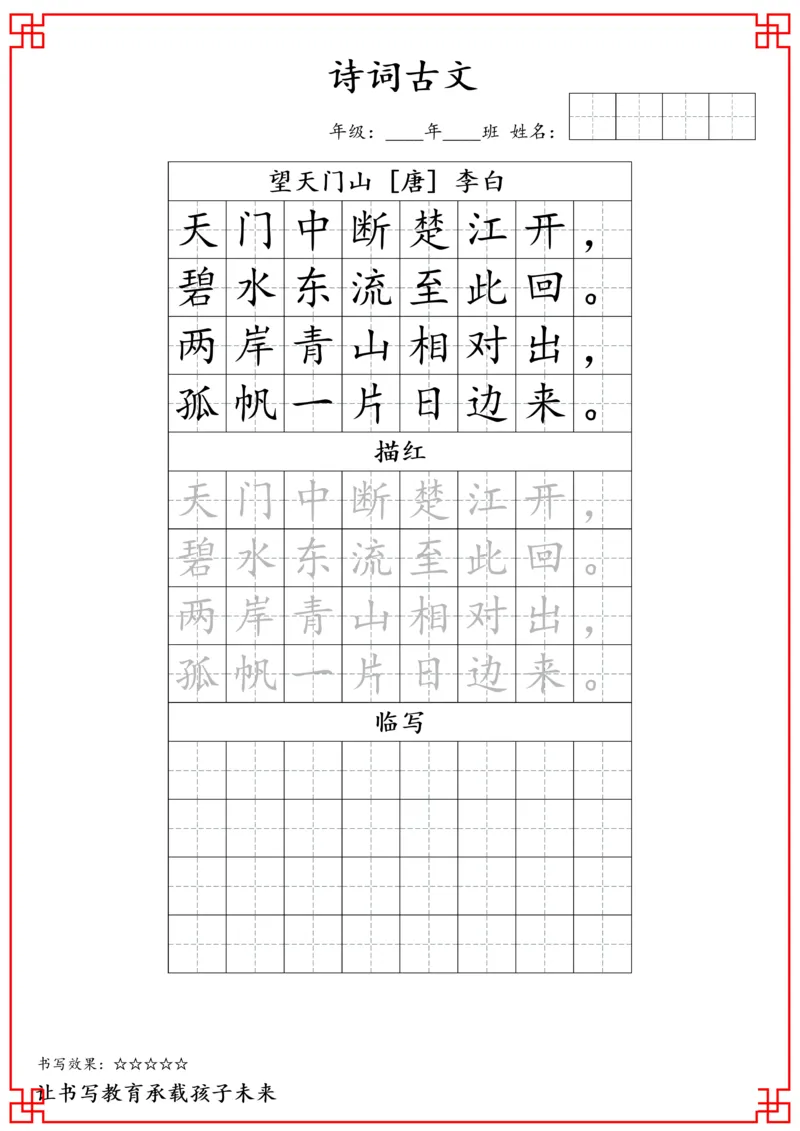 诗词古文
年级：____年____班 姓名：
望天门山 [唐] 李白
天门中断楚江开，
碧水东流至此回。
两岸青山相对出，
孤帆一片日边来。
描红
天门中断楚江开，
碧水东流至此回。
两岸青山相对出，
孤帆一片日边来。
临写
书写效果：☆☆☆☆☆
让书写教育承载孩子未来